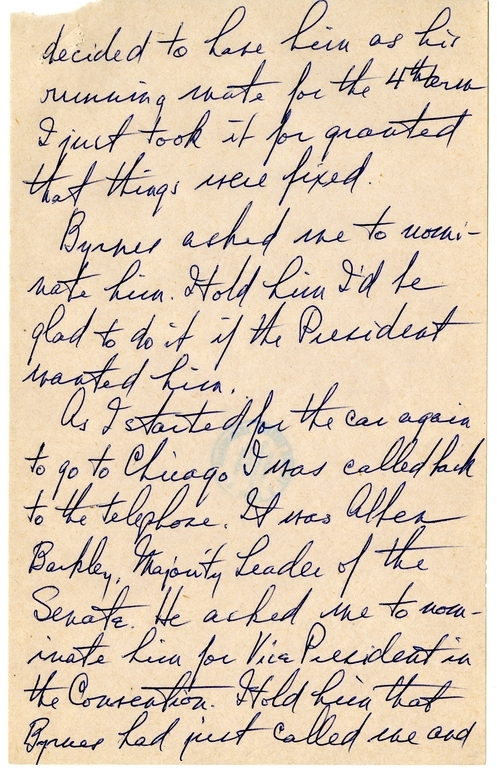 decided to have him as his
running mate for the 4th term
I just took it for granted
that things were fixed.
Byrnes asked me to nomi-
nate him. I told him I'd be
glad to do it if the President
wanted him.
As I started for the car again
to go to Chicago I was called back
to the telephone. It was Alben
Barkley, Majority Leader of the
Senate. He asked me to nom-
inate him for Vice President in
the Convention. I told him that
Byrnes had just called me and